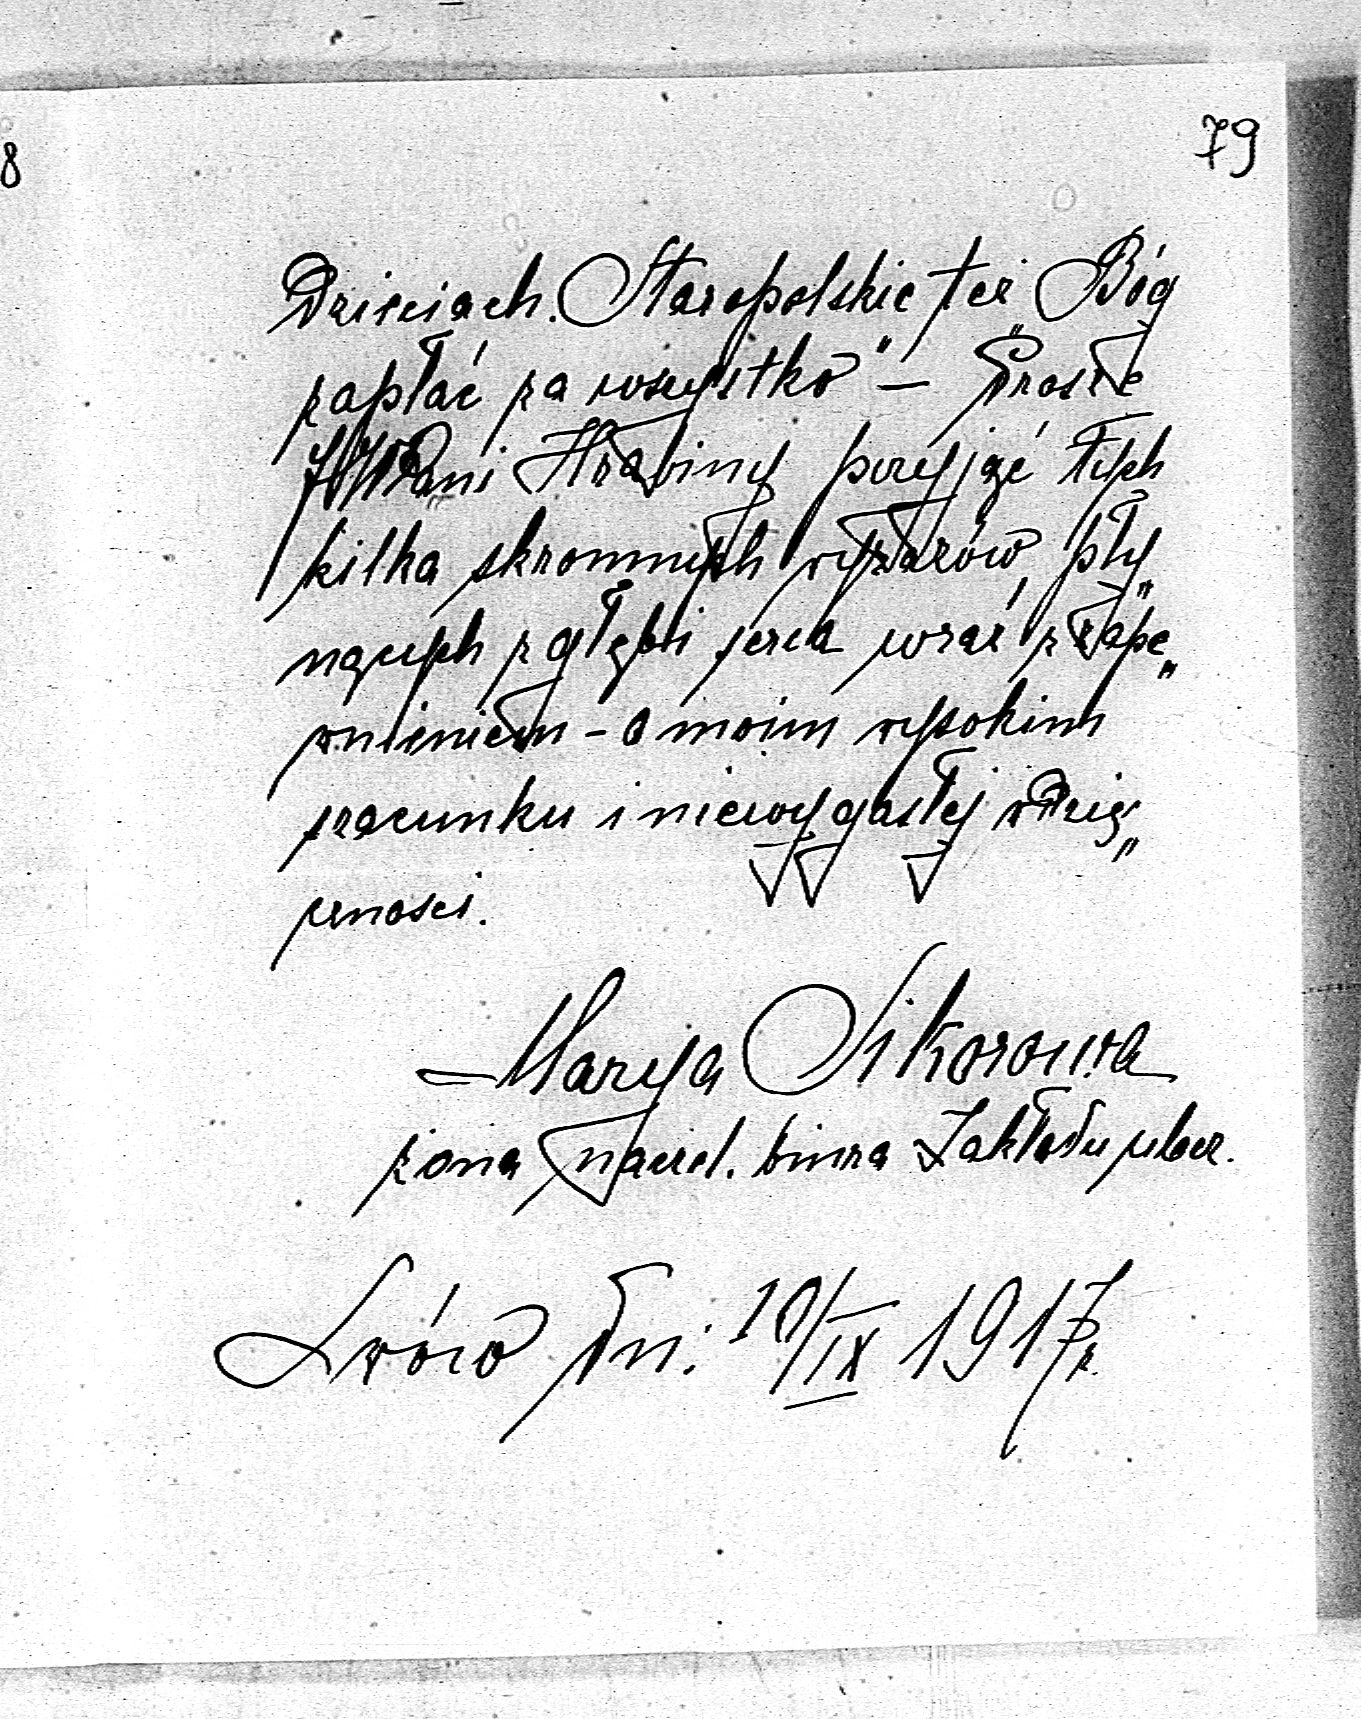 79
8
Dzieciach. Staropolskie też Bóg
zapłać za wszystko" — Proszę
JWPani Hrabiny przyjąć tych
kilka skromnych wyrazów, pły„
nących z głębi serca wraz z zape„
wnieniem - o moim wysokim
szacunku i niewygasłej wdzię„
czności.
Marya Sikorowa
żona naczel. biura Zakładu ubez.
Lwów dn: 10/IX 1917 r.